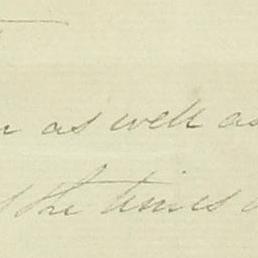 as well as
the times